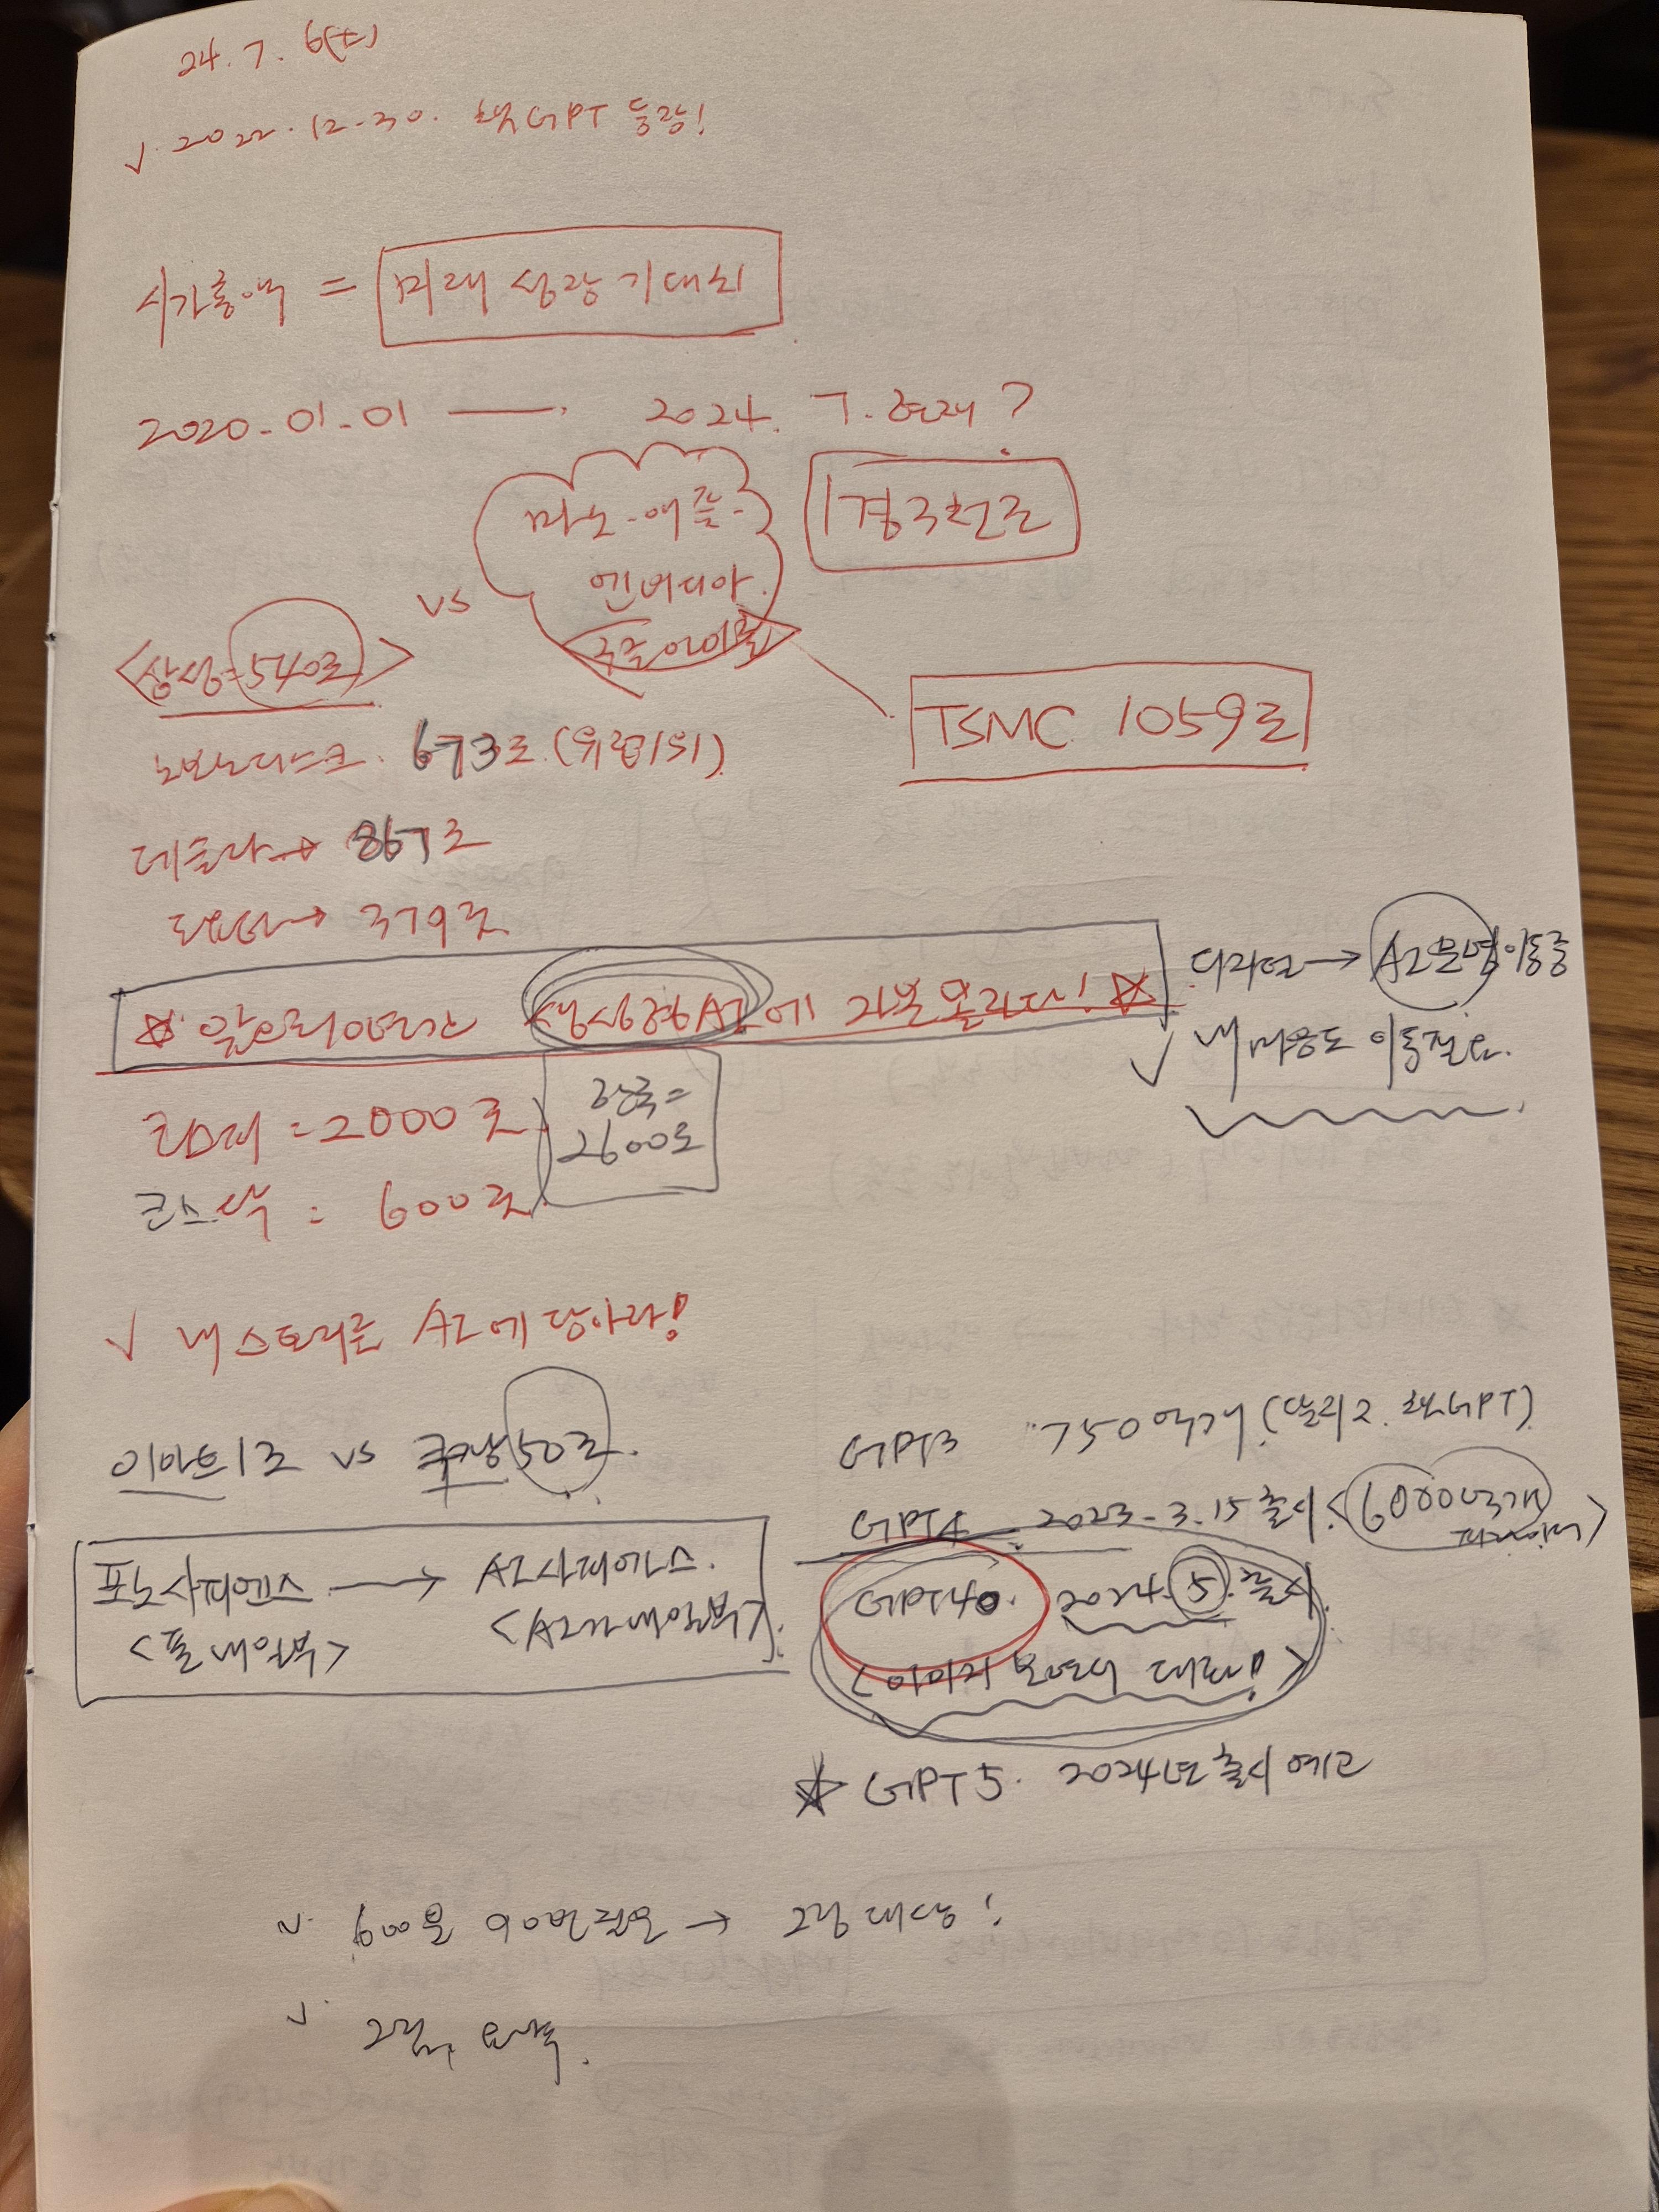 24. 7. 6(토)
✓. 2022. 12. 30. 챗GPT 등장!
시가총액 = 미래 성장 기대치
2020. 01. 01 — 2024. 7. 현재?
마소. 애플.
엔비디아.
구글 아마존
1경 국천조
vs
<삼성=540조>
TSMC 1059조
노보노디스크. 673조 (유럽1위)
테슬라→ 867조
토요타→ 379조
☆. 앞으로10년간 생성형AI에 자본 몰린다! ☆
디지털→ AI문명 이동중
✓ 내 마음도 이동필요.
코스피 = 2000조
코스닥 : 600조
한국=
2600조
✓ 내 스토리를 AI에 담아라!
이마트1조 vs 쿠팡50조.
포노사피엔스 → AI사피엔스.
<폰 내일부> <AI가 내일부>
GPT3 750억개 (달리2. 챗GPT)
GPT4 2023. 3. 15 출시 <6000억개
파라미터>
GPT4o. 2024. 5. 출시
<이미지 보면서 대화!>
☆ GPT5. 2024년 출시 예고
✓. 600을
대상!
✓.
요약.